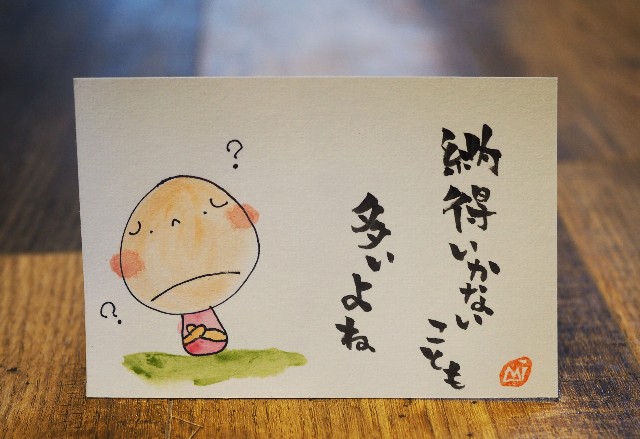 納得いかない
ことも
多いよね
?
?